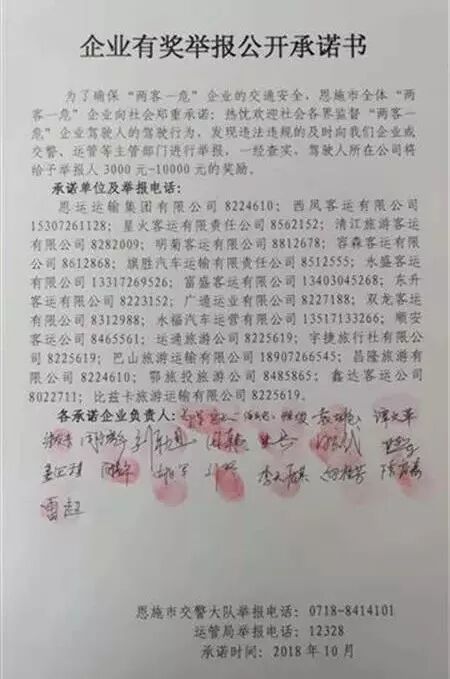 企业有奖举报公开承诺书
为了确保“两客一危”企业的交通安全，恩施市全体“两
客一危”企业向社会郑重承诺：热忱欢迎社会各界监督“两客一
危”企业驾驶人的驾驶行为，发现违法违规的及时向我们企业或
交警、运管等主管部门进行举报，一经查实，驾驶人所在公司将
给予举报人 3000 元-10000 元的奖励。
承诺单位及举报电话：
恩运运输集团有限公司 8224610；西凤客运有限公司
15307261128；星火客运有限责任公司 8562152；清江旅游客运
有限公司 8282009；明菊客运有限公司 8812678；容森客运有限
公司 8612868；旗胜汽车运输有限责任公司 8512555；永盛客运
有限公司 13317269526；富盛客运有限公司 13403045268；东升
客运有限公司 8223152；广通运业有限公司 8227188；双龙客运
有限公司 8312988；永福汽车运营有限公司 13517133266；顺安
客运有限公司 8465561；运通旅游公司 8225619；宇捷旅行社有
限公司 8225619；巴山旅游运输有限公司 18907266545；昌隆旅游有
限公司 8224610；鄂旅投旅游公司 8485865；鑫达客运公司
8022711；比兹卡旅游运输有限公司 8225619。
各承诺企业负责人：
雷超
恩施市交警大队举报电话：0718-8414101
运管局举报电话：12328
承诺时间：2018 年 10 月